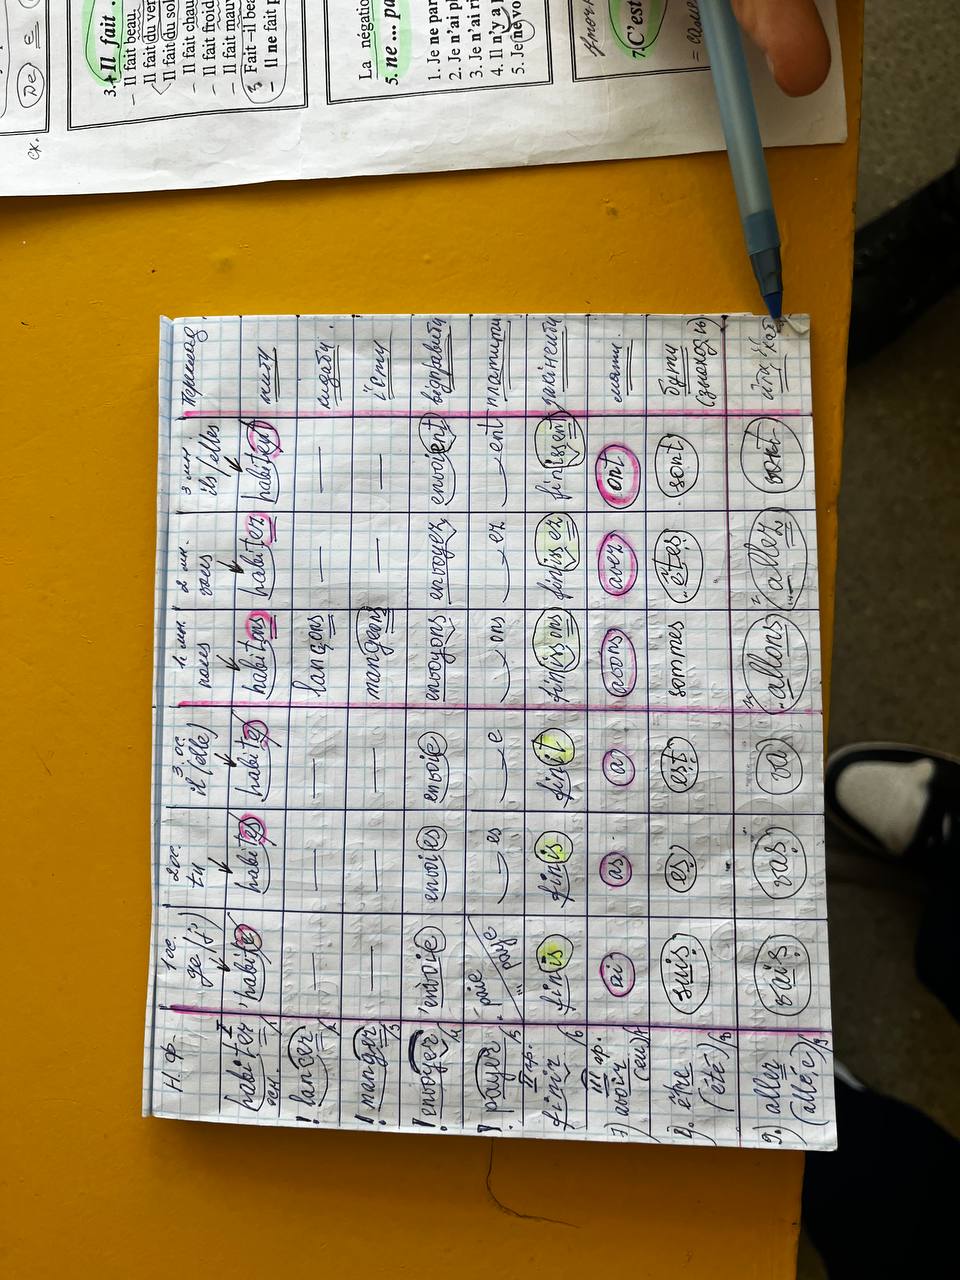 De
ск.
3. Il fait
– Il fait beau.
Il fait du ver
Il fait du sol
– Il fait chau
– Il fait froid
– Il fait mauv
Fait –il bea
– Il ne fait p
La négatio
5. ne ... pa
1. Je ne par
2. Je n'ai pl
3. Je n'ai ri
4. Il n'y a p
5. Je ne vo
7. C'est
Н.ф. 1 ос. je (j') 2 ос. tu 3. ос. il (elle) 1 мн. nous 2 мн. vous 3 мн. ils/elles переклад
habiter I 1 habite habites habite habitons habitez habitent жити
осн.
! lancer 2 — — — lançons — — кидати
! manger 3 — — — mangeons — — їсти
! envoyer 4 envoie envoies envoie envoyons envoyez envoient відправити
! payer 5 paie / paye es e ons ez ent платити
II гр. finir 6 finis finis finit finissons finissez finissent закінчити
III гр.
7) avoir ai as a avons avez ont мати
(eu)
8) être suis es est sommes êtes sont бути
(été) 8 (знаход.)
9.) aller vais vas va allons allez vont
(allé, e) 9